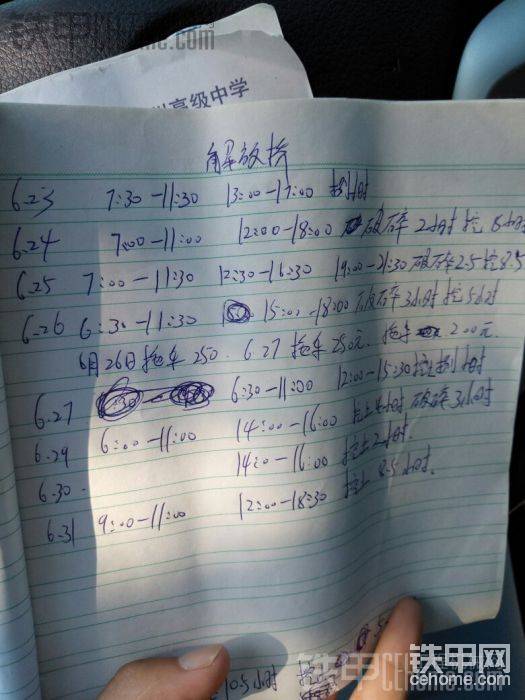 铁甲论坛
cehome.com
高级中学
解放桥
6.23 7:30-11:30 13:00-17:00 挖8小时
6.24 7:00-11:00 12:00-18:00 破碎2小时 挖8小时
6.25 7:00-11:30 12:30-16:30 19:00-21:30 破碎2.5 挖8.5
6.26 6:30-11:30 15:00-18:00 破碎3小时 挖5小时
6月26日拖车250. 6.27拖车250元. 拖车200元.
6.27 6:30-11:00 12:00-15:30 挖土8小时
6.29 6:00-11:00 14:00-16:00 挖土4小时 破碎3小时
6.30. 14:0-16:00 挖土2小时.
6.31 9:00-11:00 12:00-18:30 挖土8.5小时.
10.5小时
铁甲网
cehome.com